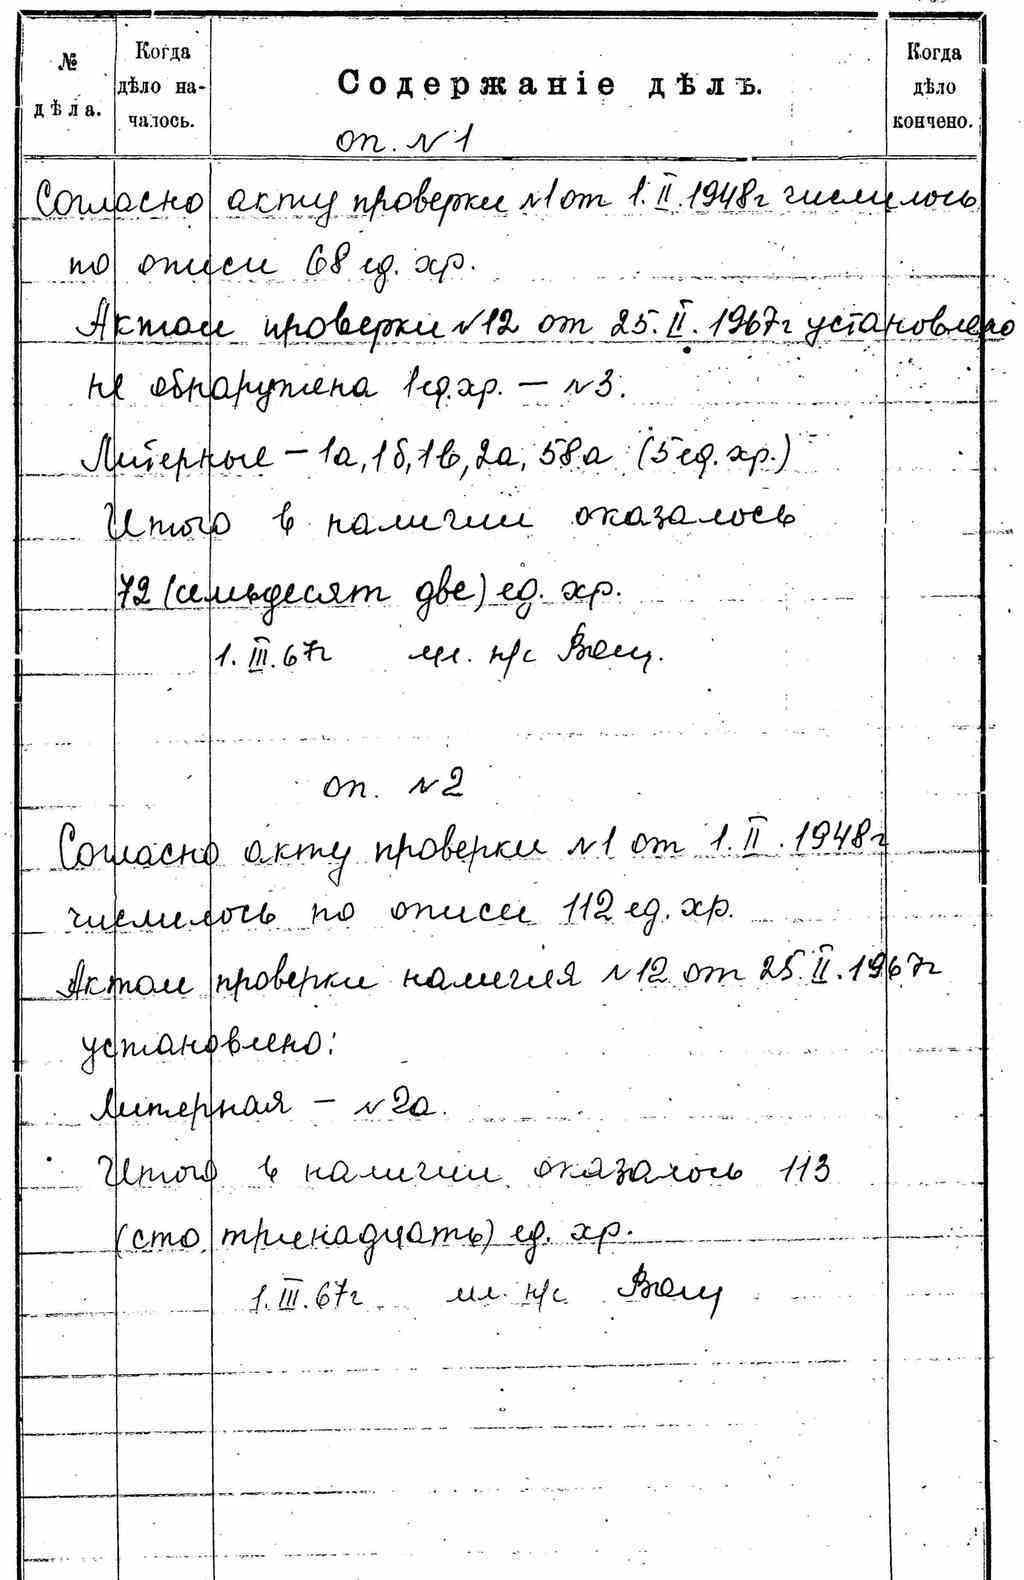 № дѣла.
Когда дѣло на-
чалось.
Содержаніе дѣлъ.
Когда дѣло кончено.
оп. №1
Согласно акту проверки №1 от 1.II.1948г числилось
по описи 68 ед. хр.
Актом проверки №12 от 25.II.1967г установлено
не обнаружена 1ед.хр. – №3.
Литерные – 1а, 1б, 1в, 2а, 58а (5 ед. хр.)
Итого в наличии оказалось
72 (семьдесят две) ед. хр.
1.III.67г мл. н/с
оп. №2
Согласно акту проверки №1 от 1.II.1948г
числилось по описи 112 ед. хр.
Актом проверки наличия №12 от 25.II.1967г
установлено:
Литерная – №2а.
Итого в наличии оказалось 113
(сто тринадцать) ед. хр.
1.III.67г мл. н/с